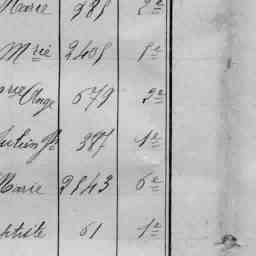 Marie 981 2e
Mrie 2401 1e
Ange 679 2e
387 1e
Marie 2843 6e
61 1e